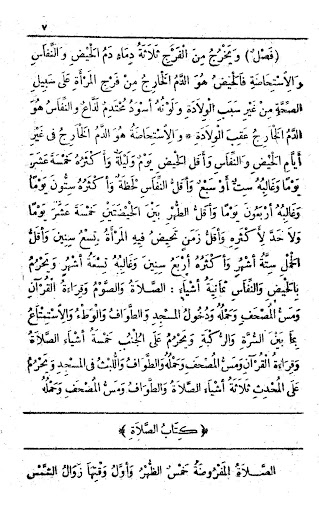 ٧
(فَصْلٌ) وَيَخْرُجُ مِنَ الْفَرْجِ ثَلَاثَةُ دِمَاءٍ دَمُ الْحَيْضِ وَالنِّفَاسِ
وَالِاسْتِحَاضَةِ فَالْحَيْضُ هُوَ الدَّمُ الْخَارِجُ مِنْ فَرْجِ الْمَرْأَةِ عَلَى سَبِيلِ
الصِّحَّةِ مِنْ غَيْرِ سَبَبِ الْوِلَادَةِ وَلَوْنُهُ أَسْوَدُ مُحْتَدِمٌ لَذَّاعٌ وَالنِّفَاسُ هُوَ
الدَّمُ الْخَارِجُ عَقِبَ الْوِلَادَةِ * وَالِاسْتِحَاضَةُ هُوَ الدَّمُ الْخَارِجُ فِي غَيْرِ
أَيَّامِ الْحَيْضِ وَالنِّفَاسِ وَأَقَلُّ الْحَيْضِ يَوْمٌ وَلَيْلَةٌ وَأَكْثَرُهُ خَمْسَةَ عَشَرَ
يَوْمًا وَغَالِبُهُ سِتٌّ أَوْ سَبْعٌ وَأَقَلُّ النِّفَاسِ لَحْظَةٌ وَأَكْثَرُهُ سِتُّونَ يَوْمًا
وَغَالِبُهُ أَرْبَعُونَ يَوْمًا وَأَقَلُّ الطُّهْرِ بَيْنَ الْحَيْضَتَيْنِ خَمْسَةَ عَشَرَ يَوْمًا
وَلَا حَدَّ لِأَكْثَرِهِ وَأَقَلُّ زَمَنٍ تَحِيضُ فِيهِ الْمَرْأَةُ تِسْعُ سِنِينَ وَأَقَلُّ
الْحَمْلِ سِتَّةُ أَشْهُرٍ وَأَكْثَرُهُ أَرْبَعُ سِنِينَ وَغَالِبُهُ تِسْعَةُ أَشْهُرٍ وَيَحْرُمُ
بِالْحَيْضِ وَالنِّفَاسِ ثَمَانِيَةُ أَشْيَاءَ : الصَّلَاةُ وَالصَّوْمُ وَقِرَاءَةُ الْقُرْآنِ
وَمَسُّ الْمُصْحَفِ وَحَمْلُهُ وَدُخُولُ الْمَسْجِدِ وَالطَّوَافُ وَالْوَطْءُ وَالِاسْتِمْتَاعُ
بِمَا بَيْنَ السُّرَّةِ وَالرُّكْبَةِ وَيَحْرُمُ عَلَى الْجُنُبِ خَمْسَةُ أَشْيَاءَ الصَّلَاةُ
وَقِرَاءَةُ الْقُرْآنِ وَمَسُّ الْمُصْحَفِ وَحَمْلُهُ وَالطَّوَافُ وَاللُّبْثُ فِي الْمَسْجِدِ وَيَحْرُمُ
عَلَى الْمُحْدِثِ ثَلَاثَةُ أَشْيَاءَ الصَّلَاةُ وَالطَّوَافُ وَمَسُّ الْمُصْحَفِ وَحَمْلُهُ
﴿ كِتَابُ الصَّلَاةِ ﴾
الصَّلَاةُ الْمَفْرُوضَةُ خَمْسٌ الظُّهْرُ وَأَوَّلُ وَقْتِهَا زَوَالُ الشَّمْسِ